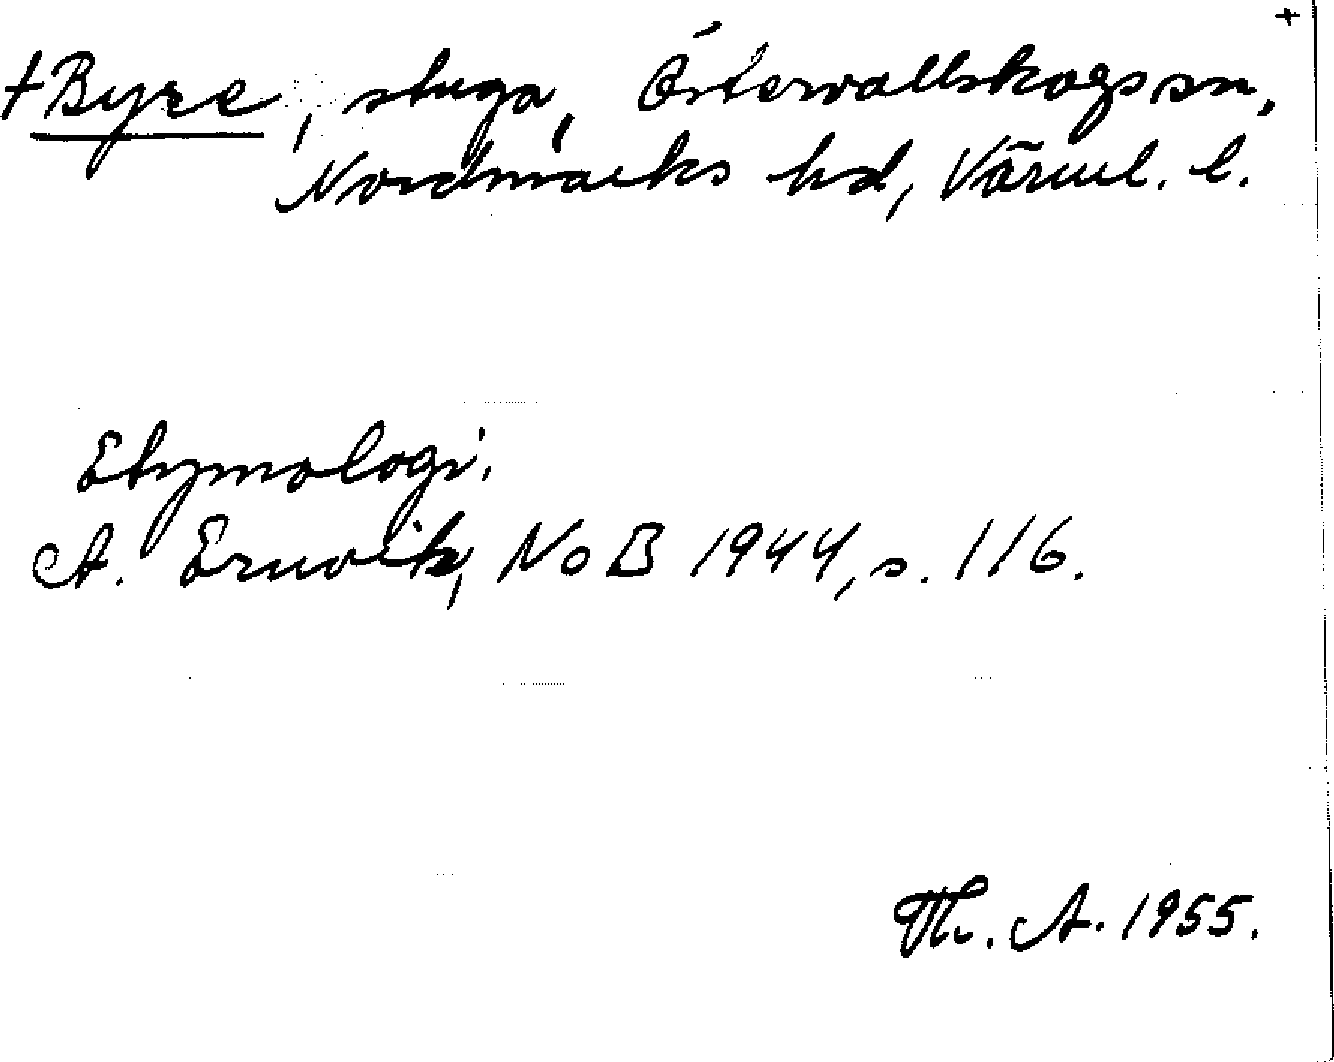 +
†Byre, stuga, Östervallskogs sn,
Nordmarks hd, Värml. l.
Etymologi.
A. Ernvik, NoB 1944, s. 116.
Th. A. 1955.